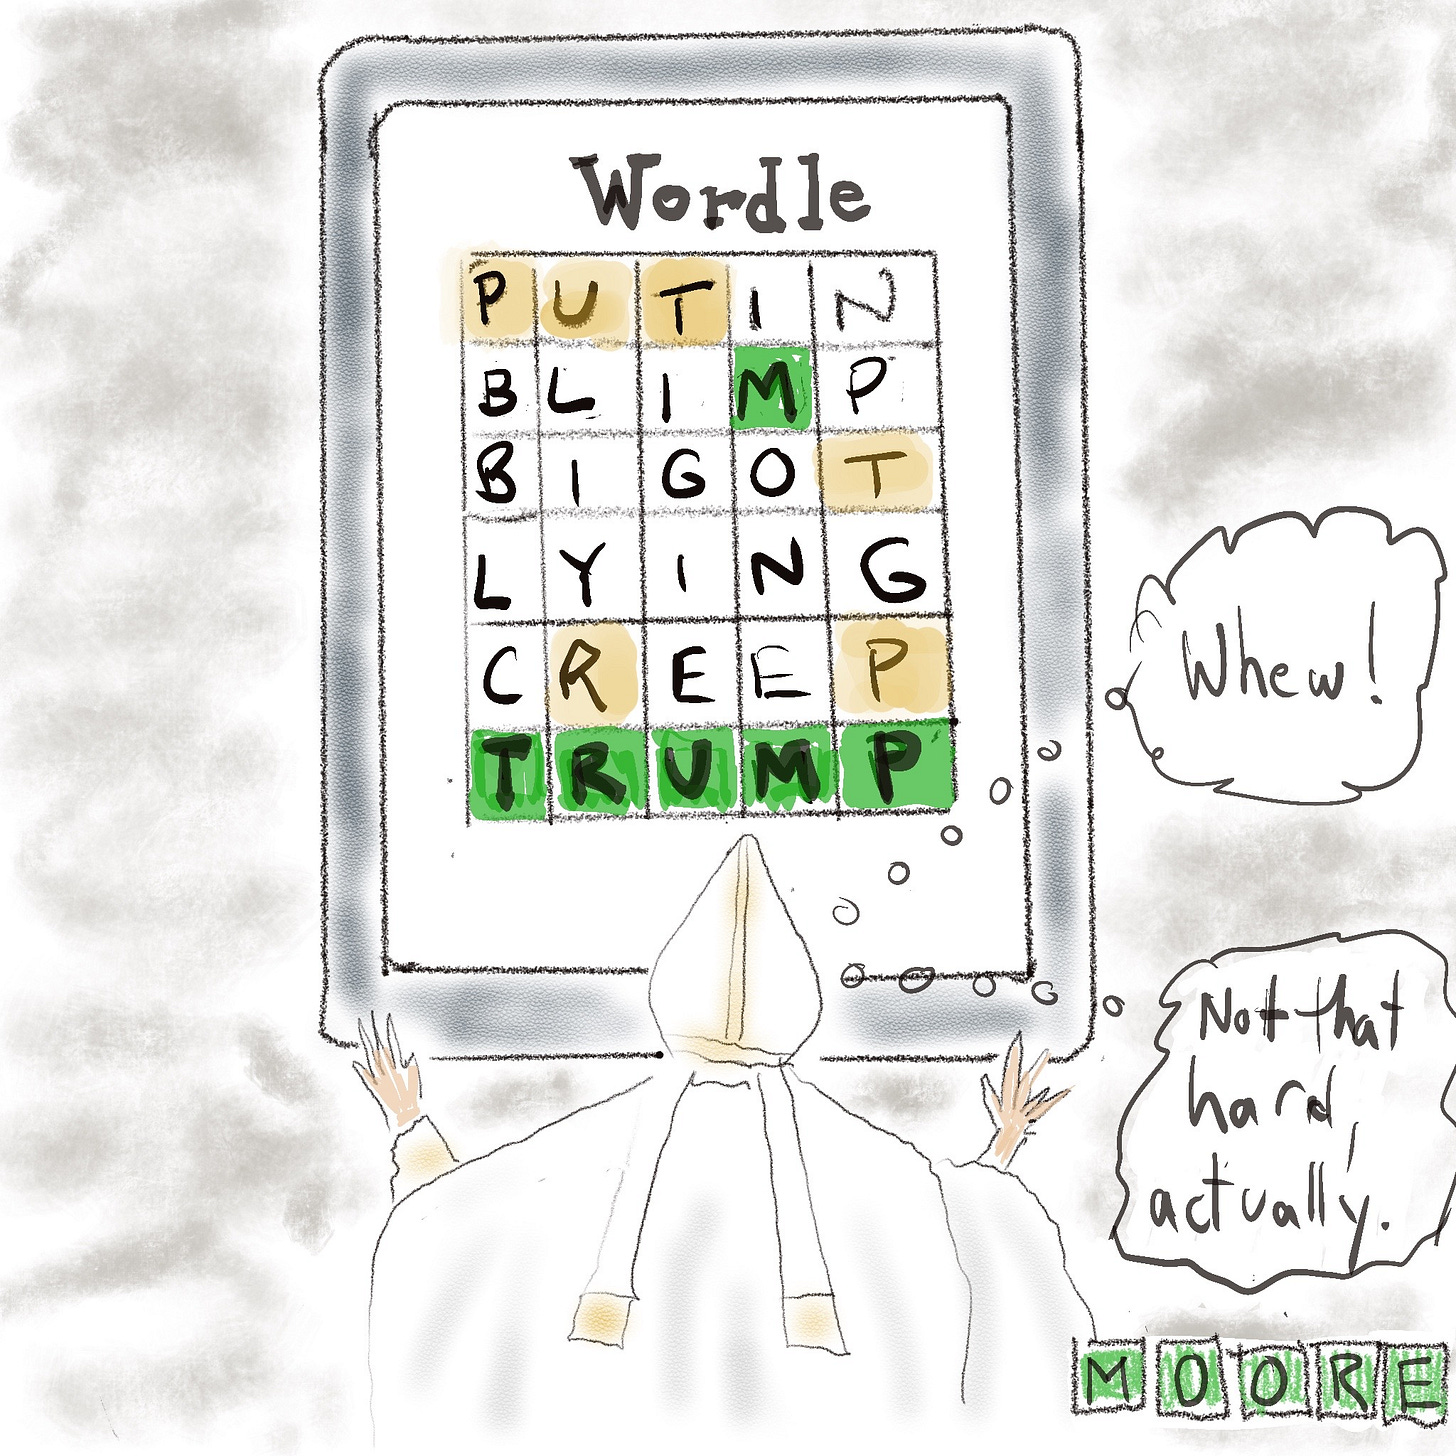 Wordle
PUTIN
BLIMP
BIGOT
LYING
CREEP
TRUMP
Whew!
Not that
hard,
actually.
MOORE